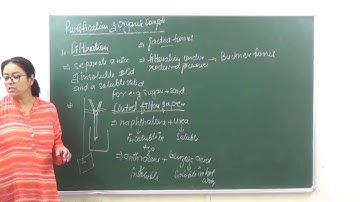 Purification of Organic Compds
1. Filtration → Jacketed funnel
⇒ separate a mix ⇒ filtration under → Buchner funnel
of insoluble solid reduced pressure
and a soluble solid
for e.g sugar + sand
⇒ fluted filter paper
⇒ naphthalene + urea
insoluble in soluble
H₂O
⇒ anthracene + benzoic acid
insoluble soluble in hot